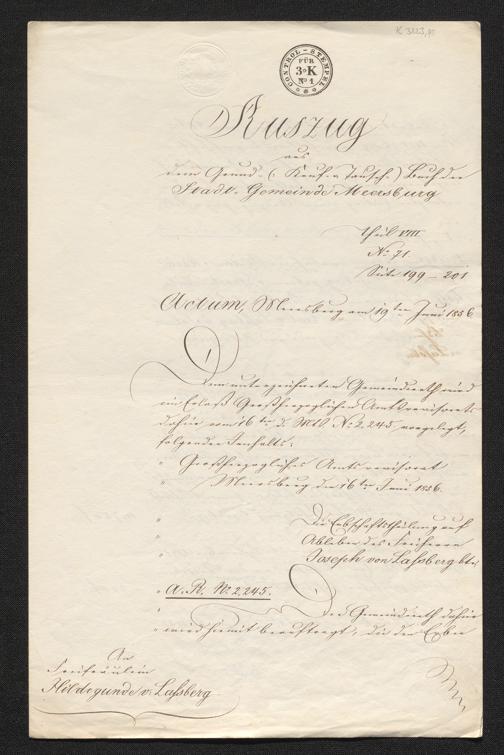 K 3323,10
CONTROL-STEMPEL
FÜR
3 K
No 1
Auszug
aus
dem Grund- (: Kauf u Tausch :) Buch der
Stadt-Gemeinde Meersburg
Theil VIII
No. 71
Seite 199 – 201
Actum, Meersburg am 19ten Juni 1856
Dem unterzeichneten Gemeindrath wird
ein Erlaß Großherzoglichen Amtsrevisorats
dahier vom 16ten d. Mts. No. 2.245, vorgelegt,
folgenden Inhalts:
" Großherzogliches Amtsrevisorat
" Meersburg den 16ten Juni 1856.
" Die Erbschaftstheilung auf
Ableben des Freiherrn
" Joseph von Laßberg btr.
" A. R. No. 2.245.
" Der Gemeindrath dahier
" wird hiemit beauftragt, die den Erben
An
Freifräulein
Hildegunde v. Laßberg